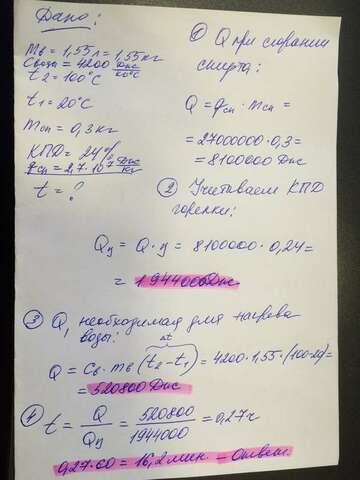 Дано:
mв = 1,55 г = 1,55 кг
Cвода = 4200 Дж/кг°C
t2 = 100°C
t1 = 20°C
mсп = 0,3 кг
КПД = 24%
qсп = 2,7·10⁷ Дж/кг
t = ?
① Q при сгорании
спирта:
Q = qсп · mсп =
= 27000000·0,3 =
= 8100000 Дж
② Учитываем КПД
горелки:
Qп = Q · η = 8100000 · 0,24 =
= 1944000 Дж
③ Q, необходимая для нагрева
воды:
Δt
Q = Cв · mв (t2 - t1) = 4200 · 1,55 · (100-20) =
= 520800 Дж
④ t = Q/Qп = 520800/1944000 = 0,27 ч
0,27·60 = 16,2 мин = Ответ.